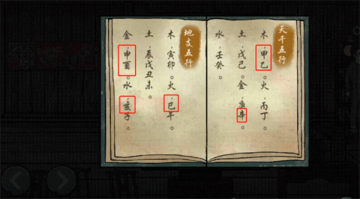 天干五行
木：甲乙。火：丙丁
土：戊己。金：庚辛
水：壬癸。
地支五行
木：寅卯。火：巳午
土：辰戌丑未。
金：申酉。水：亥子。